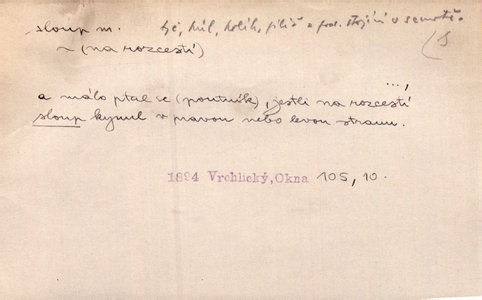 sloup m. tyč, kůl, kolík, pilíř a pod. stojící v zemi
~ (na rozcestí)
...,
a málo ptal se (poutník), jestli na rozcestí
sloup kynul v pravou nebo levou stranu.
1894 Vrchlický, Okna 105, 10.